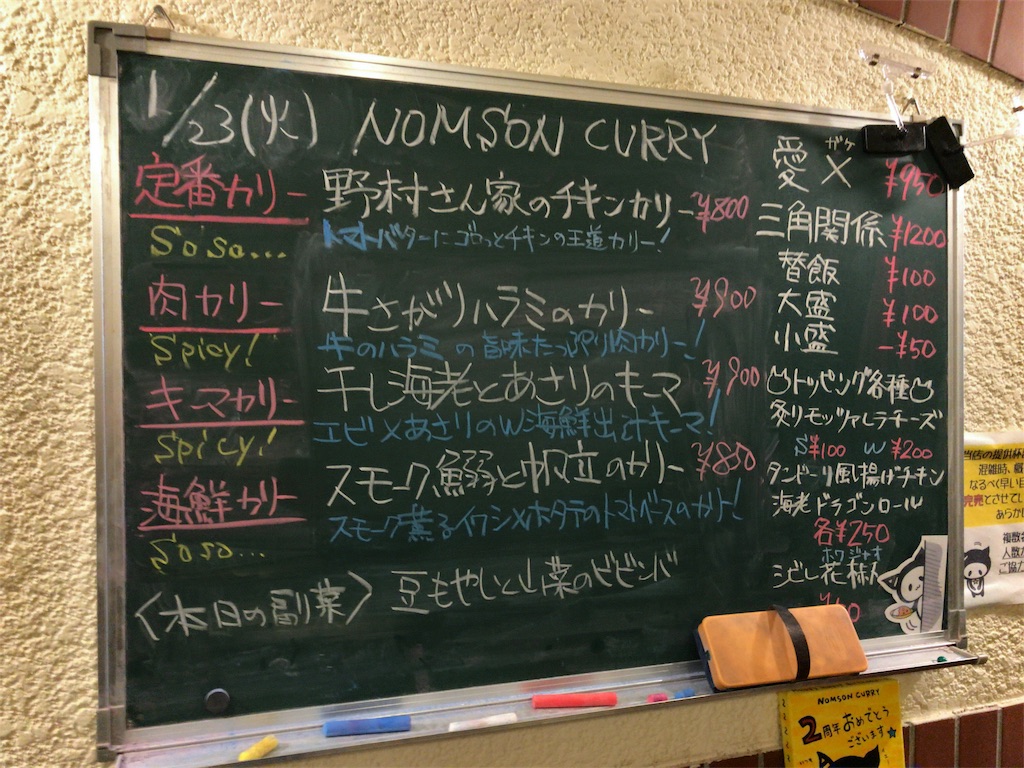 1/23(火) NOMSON CURRY
定番カリー
野村さん家のチキンカリー ¥800
So so...
トマトバターにゴロっとチキンの王道カリー!
肉カリー
牛さがりハラミのカリー ¥900
Spicy!
牛のハラミの旨味たっぷり肉カリー!
キーマカリー
干し海老とあさりのキーマ ¥900
Spicy!
エビ×あさりのW海鮮出汁キーマ!
海鮮カリー
スモーク鰯と帆立のカリー ¥850
So so...
スモーク薫るイワシ×ホタテのトマトベースのカリー!
〈本日の副菜〉 豆もやしと山菜のビビンバ
ガケ
愛× ¥950
三角関係 ¥1200
替飯 ¥100
大盛 ¥100
小盛 -¥50
トッピング各種
炙りモッツァレラチーズ
S¥100 W¥200
タンドーリ風揚げチキン
海老ドラゴンロール
各¥250
ホワジャオ
シビレ花椒
当店の提供杯
混雑時、
なるべく早い目
完売とさせてい
あらかじ
複数名
人数が
ご協力
NOMSON CURRY
2周年おめでとう
ございます